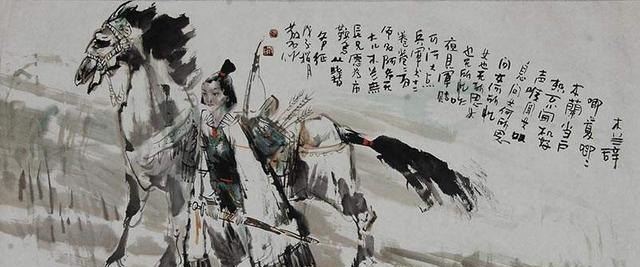 木兰辞
唧唧复唧唧
木兰当户
织不闻机杼
声唯闻女叹
息问女何所思
问女何所忆
女亦无所思女
亦无所忆昨
夜见军帖
可汗大点
兵军书十二
卷卷卷有
爷名阿爷无
大儿木兰无
长兄愿为市
鞍马从此替
爷征
戊子腊月